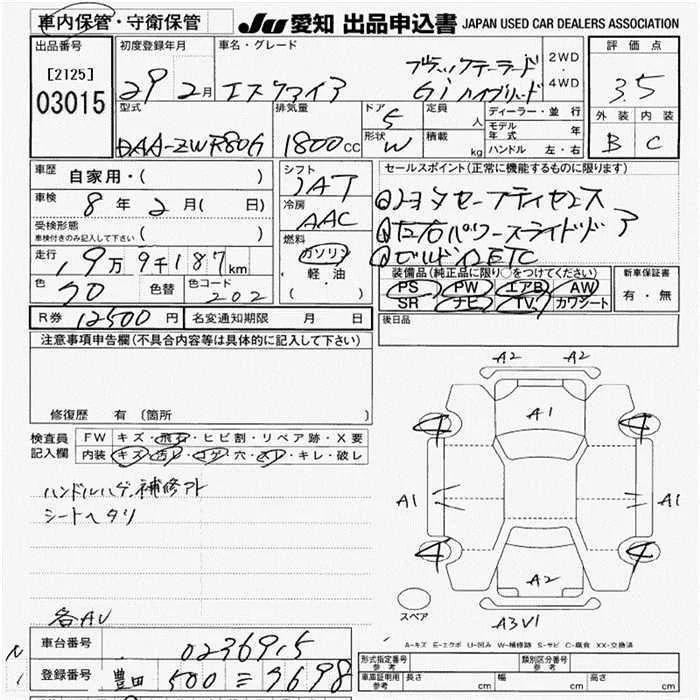 車内保管・守衛保管 JU 愛知 出品申込書 JAPAN USED CAR DEALERS ASSOCIATION
出品番号 初度登録年月 車名・グレード 評価点
[2125] 29 2月 エスクァイア ブラックテーラード 2WD ・ 4WD
03015 Gi ハイブリッド 3.5
型式 排気量 ドア 5 定員 人 ディーラー・並行 外装 内装
DAA-ZWR80G 1800CC 形状 W 積載 kg モデル年式 年 B C
ハンドル 左・右
車歴 自家用・( ) シフト IAT セールスポイント(正常に機能するものに限ります)
車検 8年 2月( 日) 冷房 AAC ①トヨタセーフティセンス
受検形態 車検付きのみ記入して下さい ( ) 燃料 ②左右パワースライドドア
走行 9万9千187km ガソリン ③ビルドインETC
軽油 装備品(純正品に限り○をつけてください) 新車保証書
色 70 色替 色コード 202 ( ・ ) PS PW エアB AW 有・無
SR ナビ TV カワシート
R券 12500円 名変通知期限 月 日 後日品
注意事項申告欄(不具合内容等は具体的に記入して下さい)
修復歴 有 (箇所 )
検査員記入欄 FW キズ・飛石・ヒビ割・リペア跡・X要
内装 キズ・汚レ・コゲ・穴・スレ・キレ・破レ
ハンドルハゲ、補修アト
シートヘタリ
各AU
A2 A2
A1
4 4
A1 A1
4 4
A2
スペア A3V1
A-キズ E-エクボ U-凹み W-補修跡 S-サビ C-腐食 XX-交換済
車台番号 0236915
登録番号 豊田 500 ミ 3698
型式指定番号 参考 類別区分番号 参考
車庫証明用 参考 長さ cm 幅 cm 高さ cm